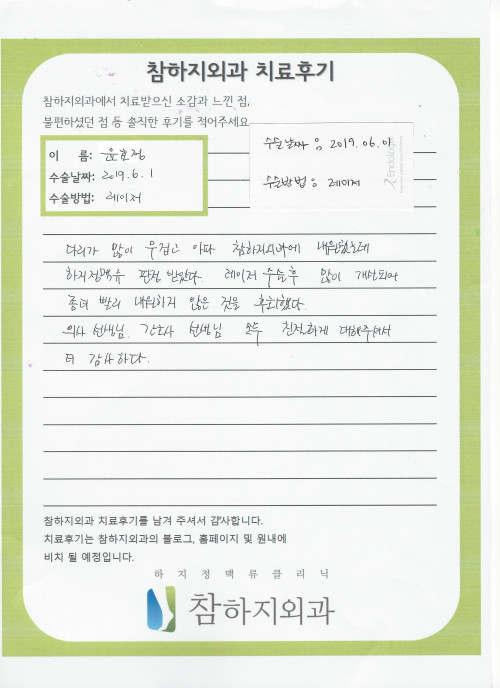 참하지외과 치료후기
참하지외과에서 치료받으신 소감과 느낀 점,
불편하셨던 점 등 솔직한 후기를 적어주세요
이 름: 윤호정
수술날짜: 2019. 6. 1
수술방법: 레이저
수술날짜 : 2019. 06. 01
수술방법 : 레이저
Endologix
다리가 많이 무겁고 아파 참하지외과에 내원했는데
하지정맥류 판정 받았다. 레이저 수술후 많이 개선되어
좀더 빨리 내원하지 않은 것을 후회했다.
의사 선생님, 간호사 선생님 모두 친절하게 대해주셔서
더 감사하다.
참하지외과 치료후기를 남겨 주셔서 감사합니다.
치료후기는 참하지외과의 블로그, 홈페이지 및 원내에
비치 될 예정입니다.
하지정맥류클리닉
참하지외과